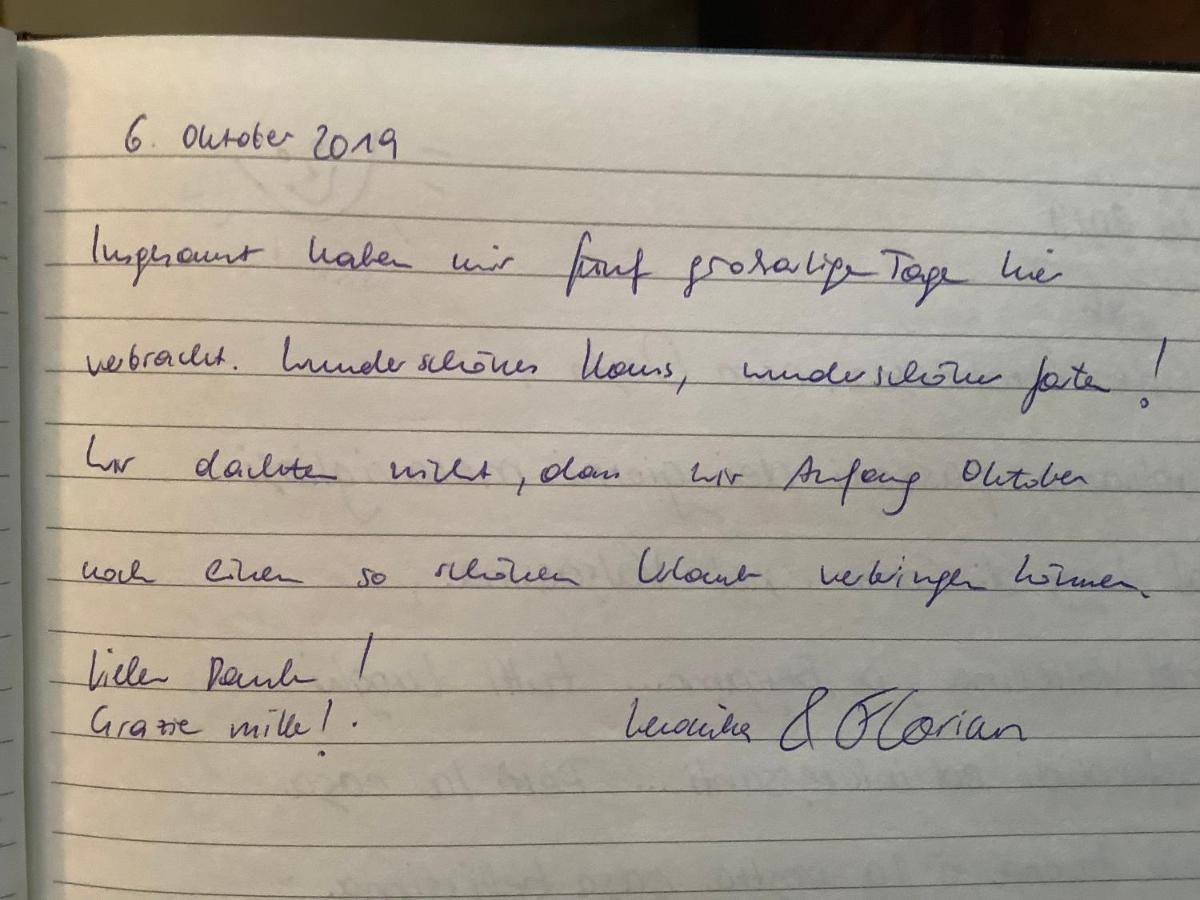 6. Oktober 2019
Insgesamt haben wir fünf großartige Tage hier
verbracht. Wunderschönes Haus, wunderschöner Garten!
Wir dachten nicht, dass wir Anfang Oktober
noch einen so schönen Urlaub verbringen können.
Vielen Dank!
Grazie mille!
Veronika & Florian